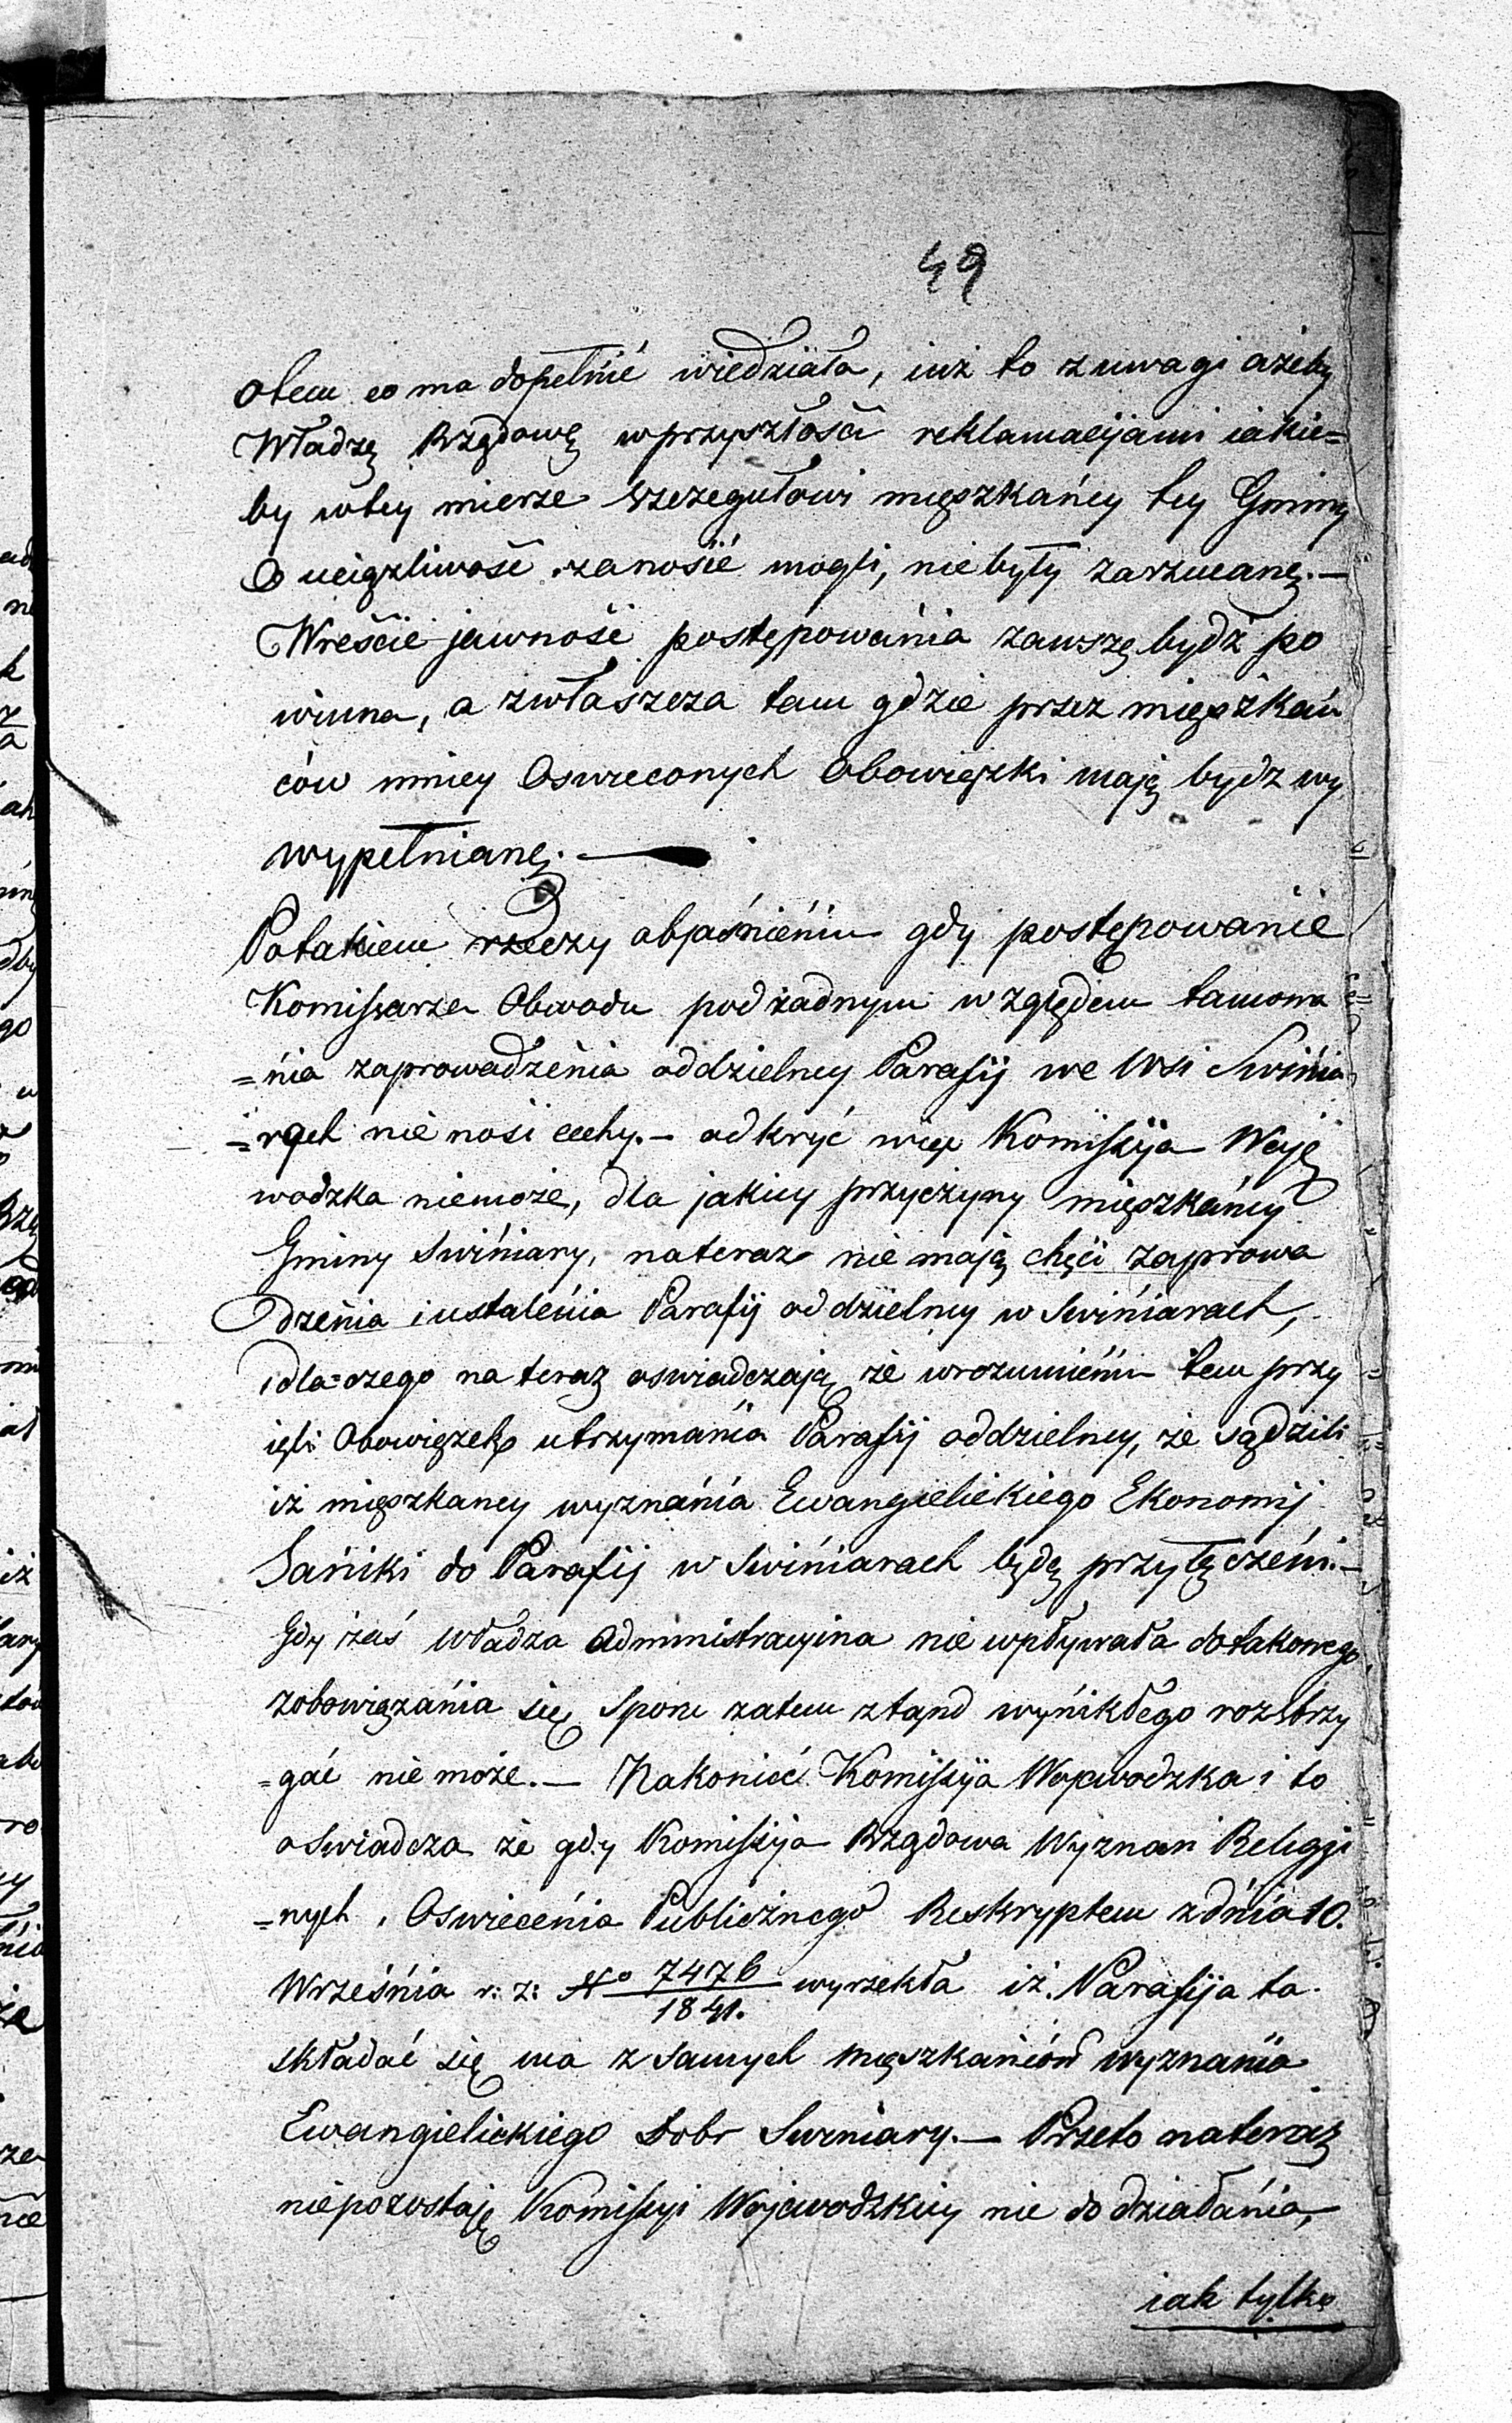 49
otem co ma dopełnić wiedziała, iuż to z uwagi ażeby
Władzę Rządową wprzyszłości reklamacijami iakie=
by wtey mierze szczegułowi mięszkańcy tey Gminy
O uciążliwość zanosić mogli, niebyły zarzucane.—
Wreście jawność postępowania zawsze bydź po
winna, a zwłaszcza tam gdzie przez mięszkań
ców mniey Oswieconych Obowiązki mają bydz wy
wypełniane.—
Potakiem rzeczy objaśnieniu gdy postępowanie
Komissarza Obwodu podżadnym względem tamowa
=nia zaprowadzenia oddzielney Parafij we Wsi Swinia
=rach nie nosi cechy.— odkryć więc Komissyja Woje
wodzka niemoże, dla jakiey przyczyny mięszkańcy
Gminy Swiniary, nateraz nie mają chęci zaprowa
dzenia i ustalenia Parafij oddzielney w Swiniarach,
i dla=czego na teraz oswiadczają że wrozumieniu tem przy
ięli Obowiązek utrzymania Parafij oddzielney, że sądzili
iż mięszkancy wyznania Ewangielickiego Ekonomij
Saniki do Parafij w Swiniarach będą przyłączeni.—
Gdy zaś władza Administracyina nie wpływała dotakowego
zobowiązania się sporu zatem ztąnd wynikłego rozstrzy
=gać nie może.— Nakoniec Komissyja Wojewodzka i to
oswiadcza że gdy Komissyja Rządowa Wyznan Religji
=nych i Oswiecenia Publicznego Reskryptem zdnia 10.
Września r: z: No 7476/1841. wyrzekła iż Parafija ta
składać się ma z samych mięszkańców wyznania
Ewangielickiego Dobr Swiniary.— Przeto nateraz
niepozostaje Komissyi Wojewodzkiey nic do działania,
iak tylko